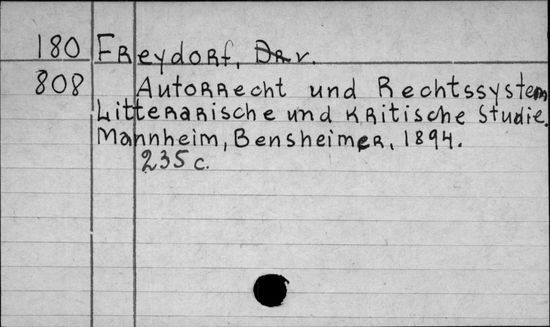 180 Freydorf, Dr v.
808 Autorrecht und Rechtssystem
Litterarische und Kritische Studie.
Mannheim, Bensheimer, 1894.
235 c.